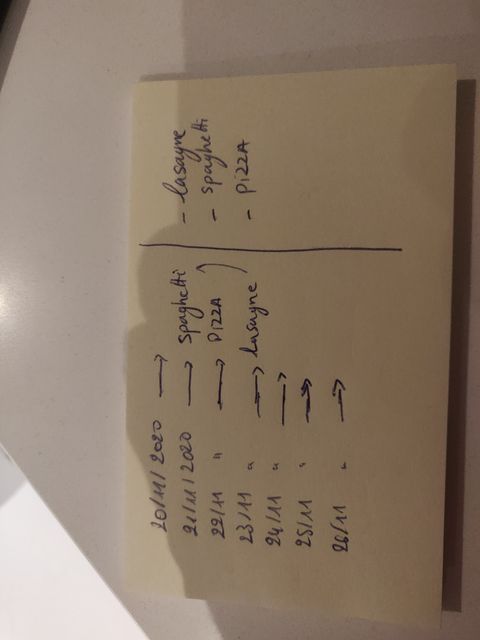 20/11/2020 →
21/11/2020 → spaghetti
22/11 " → PIZZA
23/11 " → lasagne
24/11 " →
25/11 " →
26/11 " →
- lasagne
- spaghetti
- PIZZA